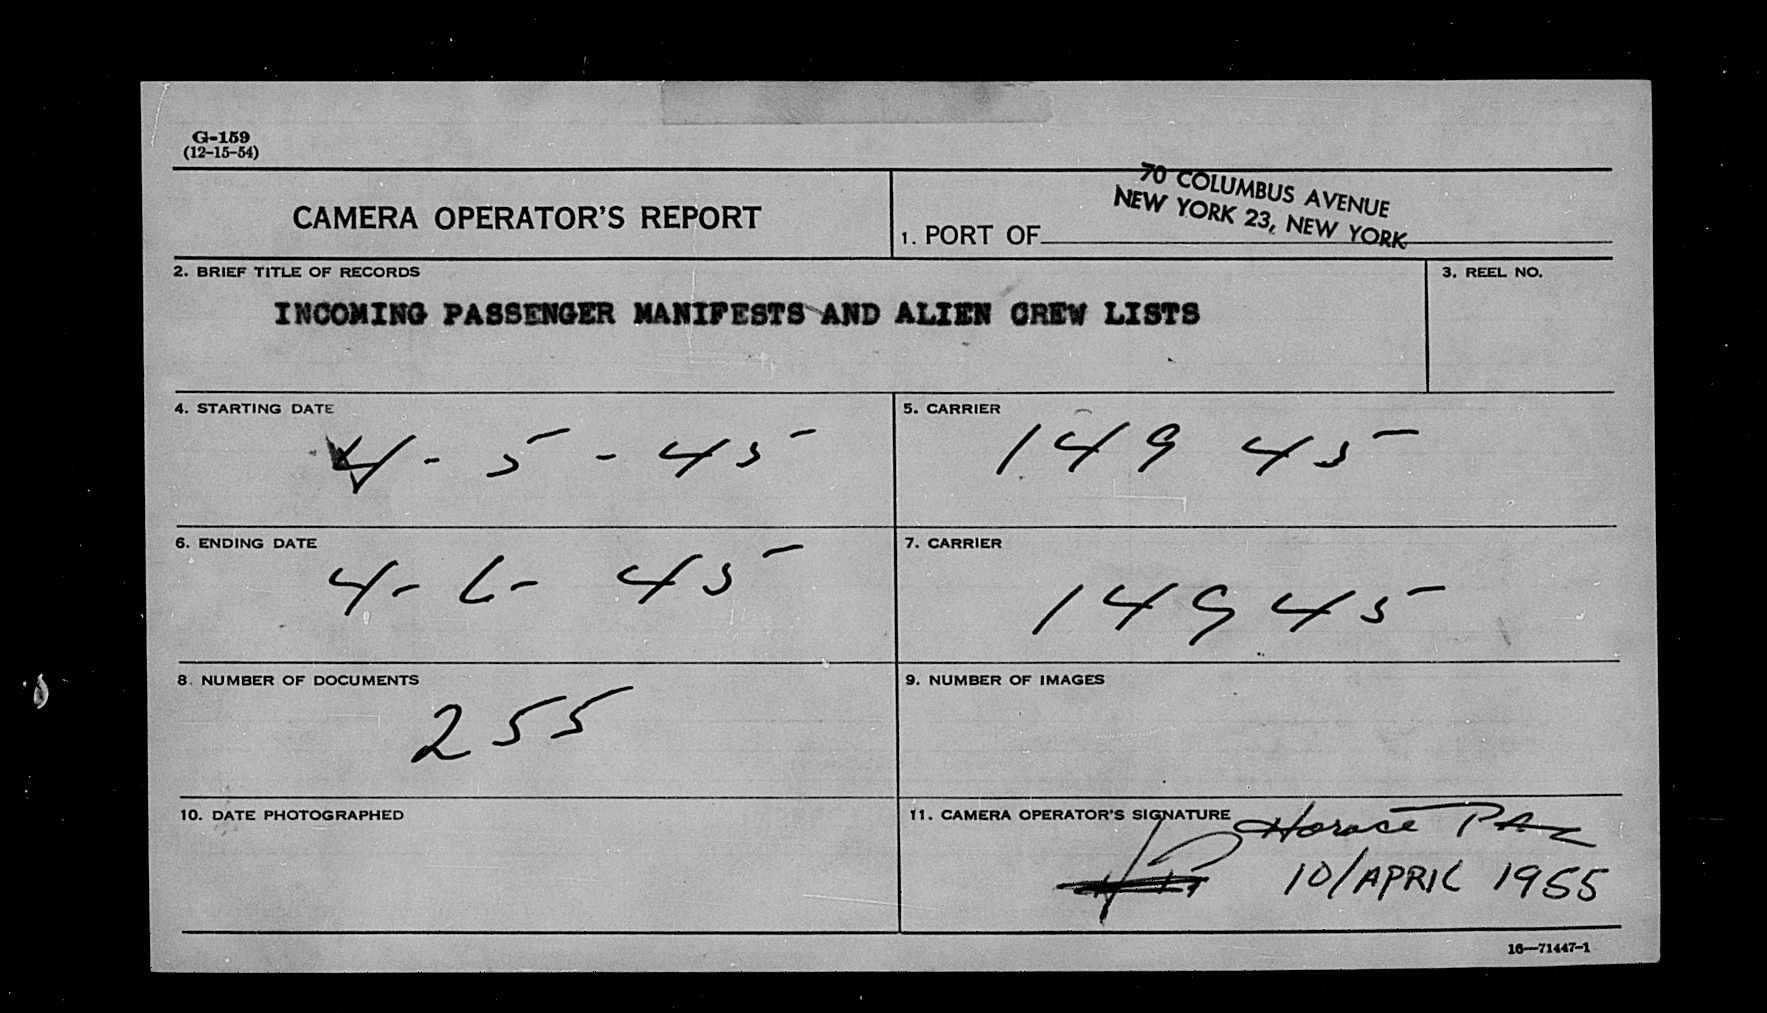 G-159
(12-15-54)
CAMERA OPERATOR'S REPORT
70 COLUMBUS AVENUE
NEW YORK 23, NEW YORK
1. PORT OF
2. BRIEF TITLE OF RECORDS
INCOMING PASSENGER MANIFESTS AND ALIEN CREW LISTS
3. REEL NO.
4. STARTING DATE
4-5-45
5. CARRIER
149 45
6. ENDING DATE
4-6-45
7. CARRIER
14945
8. NUMBER OF DOCUMENTS
255
9. NUMBER OF IMAGES
10. DATE PHOTOGRAPHED
11. CAMERA OPERATOR'S SIGNATURE
Horace
10/APRIL 1955
16—71447-1